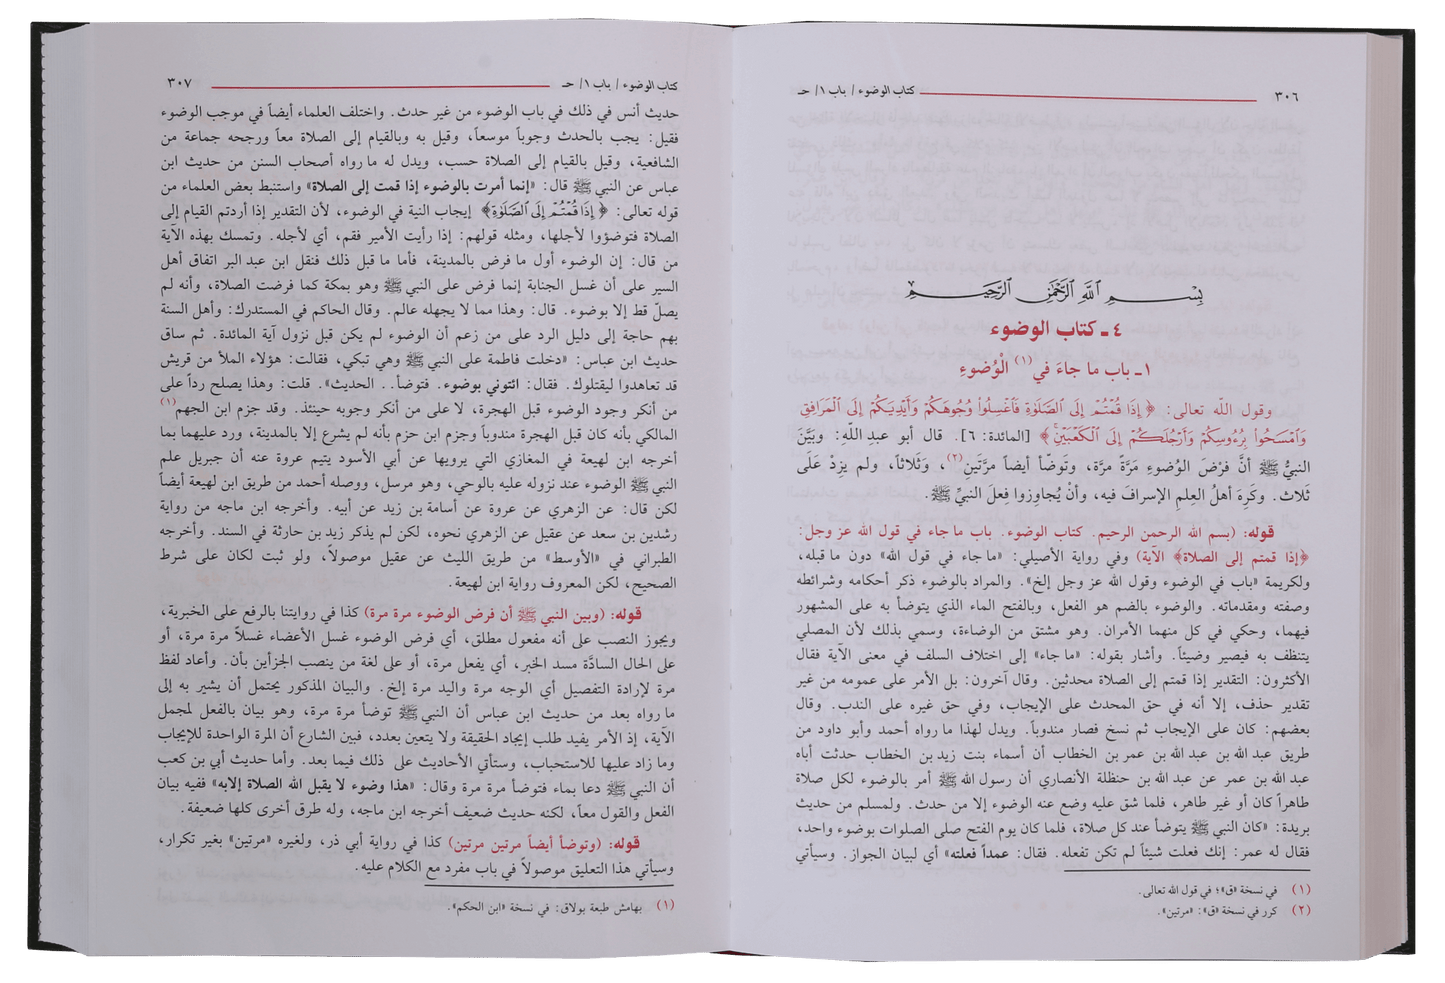 ٣٠٦ كتاب الوضوء / باب ١/ حـ
بِسْمِ اللَّهِ الرَّحْمَنِ الرَّحِيمِ
٤ ـ كتاب الوضوء
١ ـ باب ما جاءَ في(١) الْوُضوءِ
وقول اللّه تعالى: ﴿إِذَا قُمْتُمْ إِلَى ٱلصَّلَوٰةِ فَٱغْسِلُواْ وُجُوهَكُمْ وَأَيْدِيَكُمْ إِلَى ٱلْمَرَافِقِ
وَٱمْسَحُواْ بِرُءُوسِكُمْ وَأَرْجُلَكُمْ إِلَى ٱلْكَعْبَيْنِ﴾ [المائدة: ٦]. قال أبو عبدِ اللَّهِ: وبيَّنَ
النبيُّ ﷺ أنَّ فرْضَ الوُضوءِ مَرَّةً مرَّة، وتَوضّأ أيضاً مرَّتَينِ(٢)، وَثَلاثاً، ولم يزِدْ عَلَى
ثَلاث. وكَرِهَ أهلُ العِلمِ الإسرافَ فيه، وأنْ يُجاوِزوا فِعلَ النبيِّ ﷺ.
قوله: (بسم الله الرحمن الرحيم. كتاب الوضوء. باب ما جاء في قول الله عز وجل:
﴿إذا قمتم إلى الصلاة﴾ الآية) وفي رواية الأصيلي: «ما جاء في قول الله» دون ما قبله،
ولكريمة «باب في الوضوء وقول الله عز وجل إلخ». والمراد بالوضوء ذكر أحكامه وشرائطه
وصفته ومقدماته. والوضوء بالضم هو الفعل، وبالفتح الماء الذي يتوضأ به على المشهور
فيهما، وحكي في كل منهما الأمران. وهو مشتق من الوضاءة، وسمي بذلك لأن المصلي
يتنظف به فيصير وضيئاً. وأشار بقوله: «ما جاء» إلى اختلاف السلف في معنى الآية فقال
الأكثرون: التقدير إذا قمتم إلى الصلاة محدثين. وقال آخرون: بل الأمر على عمومه من غير
تقدير حذف، إلا أنه في حق المحدث على الإيجاب، وفي حق غيره على الندب. وقال
بعضهم: كان على الإيجاب ثم نسخ فصار مندوباً. ويدل لهذا ما رواه أحمد وأبو داود من
طريق عبد الله بن عبد الله بن عمر بن الخطاب أن أسماء بنت زيد بن الخطاب حدثت أباه
عبد الله بن عمر عن عبد الله بن حنظلة الأنصاري أن رسول الله ﷺ أمر بالوضوء لكل صلاة
طاهراً كان أو غير طاهر، فلما شق عليه وضع عنه الوضوء إلا من حدث. ولمسلم من حديث
بريدة: «كان النبي ﷺ يتوضأ عند كل صلاة، فلما كان يوم الفتح صلى الصلوات بوضوء واحد،
فقال له عمر: إنك فعلت شيئاً لم تكن تفعله. فقال: عمداً فعلته» أي لبيان الجواز. وسيأتي
(١) في نسخة «ق»؛ في قول الله تعالى.
(٢) كرر في نسخة «ق»: «مرتين».
كتاب الوضوء / باب ١/ حـ ٣٠٧
حديث أنس في ذلك في باب الوضوء من غير حدث. واختلف العلماء أيضاً في موجب الوضوء
فقيل: يجب بالحدث وجوباً موسعاً، وقيل به وبالقيام إلى الصلاة معاً ورجحه جماعة من
الشافعية، وقيل بالقيام إلى الصلاة حسب، ويدل له ما رواه أصحاب السنن من حديث ابن
عباس عن النبي ﷺ قال: «إنما أمرت بالوضوء إذا قمت إلى الصلاة» واستنبط بعض العلماء من
قوله تعالى: ﴿إِذَا قُمْتُمْ إِلَى ٱلصَّلَوٰةِ﴾ إيجاب النية في الوضوء، لأن التقدير إذا أردتم القيام إلى
الصلاة فتوضؤوا لأجلها، ومثله قولهم: إذا رأيت الأمير فقم، أي لأجله. وتمسك بهذه الآية
من قال: إن الوضوء أول ما فرض بالمدينة، فأما ما قبل ذلك فنقل ابن عبد البر اتفاق أهل
السير على أن غسل الجنابة إنما فرض على النبي ﷺ وهو بمكة كما فرضت الصلاة، وأنه لم
يصلّ قط إلا بوضوء. قال: وهذا مما لا يجهله عالم. وقال الحاكم في المستدرك: وأهل السنة
بهم حاجة إلى دليل الرد على من زعم أن الوضوء لم يكن قبل نزول آية المائدة. ثم ساق
حديث ابن عباس: «دخلت فاطمة على النبي ﷺ وهي تبكي، فقالت: هؤلاء الملأ من قريش
قد تعاهدوا ليقتلوك. فقال: ائتوني بوضوء. فتوضأ.. الحديث». قلت: وهذا يصلح رداً على
من أنكر وجود الوضوء قبل الهجرة، لا على من أنكر وجوبه حينئذ. وقد جزم ابن الجهم(١)
المالكي بأنه كان قبل الهجرة مندوباً وجزم ابن حزم بأنه لم يشرع إلا بالمدينة، ورد عليهما بما
أخرجه ابن لهيعة في المغازي التي يرويها عن أبي الأسود يتيم عروة عنه أن جبريل علم
النبي ﷺ الوضوء عند نزوله عليه بالوحي، وهو مرسل، ووصله أحمد من طريق ابن لهيعة أيضاً
لكن قال: عن الزهري عن عروة عن أسامة بن زيد عن أبيه. وأخرجه ابن ماجه من رواية
رشدين بن سعد عن عقيل عن الزهري نحوه، لكن لم يذكر زيد بن حارثة في السند. وأخرجه
الطبراني في «الأوسط» من طريق الليث عن عقيل موصولاً، ولو ثبت لكان على شرط
الصحيح، لكن المعروف رواية ابن لهيعة.
قوله: (وبين النبي ﷺ أن فرض الوضوء مرة مرة) كذا في روايتنا بالرفع على الخبرية،
ويجوز النصب على أنه مفعول مطلق، أي فرض الوضوء غسل الأعضاء غسلاً مرة مرة، أو
على الحال السادَّة مسد الخبر، أي يفعل مرة، أو على لغة من ينصب الجزأين بأن. وأعاد لفظ
مرة لإرادة التفصيل أي الوجه مرة واليد مرة إلخ. والبيان المذكور يحتمل أن يشير به إلى
ما رواه بعد من حديث ابن عباس أن النبي ﷺ توضأ مرة مرة، وهو بيان بالفعل لمجمل
الآية، إذ الأمر يفيد طلب إيجاد الحقيقة ولا يتعين بعدد، فبين الشارع أن المرة الواحدة للإيجاب
وما زاد عليها للاستحباب، وستأتي الأحاديث على ذلك فيما بعد. وأما حديث أبي بن كعب
أن النبي ﷺ دعا بماء فتوضأ مرة مرة وقال: «هذا وضوء لا يقبل الله الصلاة إلابه» ففيه بيان
الفعل والقول معاً، لكنه حديث ضعيف أخرجه ابن ماجه، وله طرق أخرى كلها ضعيفة.
قوله: (وتوضأ أيضاً مرتين مرتين) كذا في رواية أبي ذر، ولغيره «مرتين» بغير تكرار،
وسيأتي هذا التعليق موصولاً في باب مفرد مع الكلام عليه.
(١) بهامش طبعة بولاق: في نسخة «ابن الحكم».